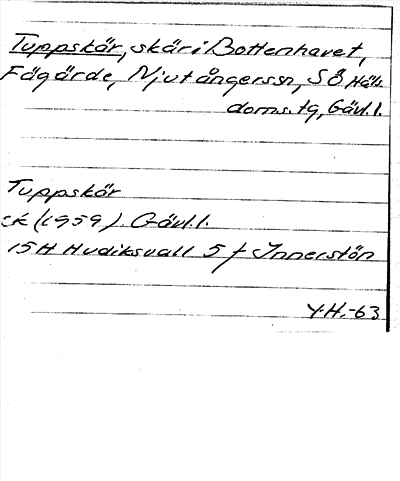 Tuppskär, skär i Bottenhavet,
Fågärde, Njutångerssn, SÖ Häls.
doms. tg, Gävl. l.
Tuppskär
ek (1959). Gävl. l.
15H Hudiksvall 5 f Innerstön
Y.H. -63